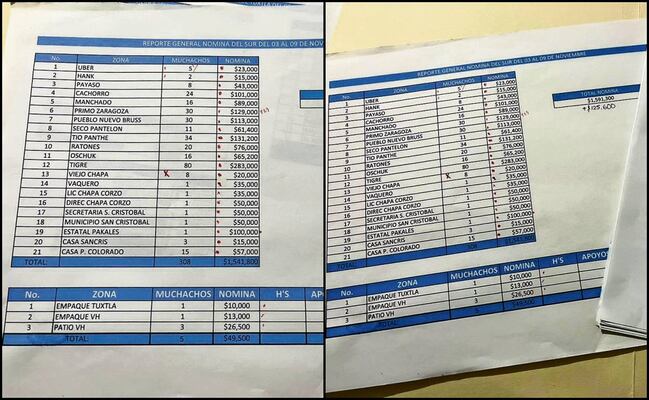 REPORTE GENERAL NOMINA DEL SUR DEL 03 AL 09 DE NOV
No. ZONA MUCHACHOS NOMINA
1 UBER 5 $23,000
2 HANK 2 $15,000
3 PAYASO 8 $43,000
4 CACHORRO 24 $101,000
5 MANCHADO 16 $89,000
6 PRIMO ZARAGOZA 30 $129,000
7 PUEBLO NUEVO BRUSS 30 $113,000
8 SECO PANTELON 11 $61,400
9 TIO PANTHE 34 $131,200
10 RATONES 20 $76,000
11 OSCHUK 16 $65,200
12 TIGRE 80 $283,000
13 VIEJO CHAPA X 8 $20,000
14 VAQUERO 1 $35,000
15 LIC CHAPA CORZO 1 $35,000
16 DIREC CHAPA CORZO 1 $50,000
17 SECRETARIA S. CRISTOBAL 1 $50,000
18 MUNICIPIO SAN CRISTOBAL 1 $50,000
19 ESTATAL PAKALES 1 $100,000
20 CASA SANCRIS 3 $15,000
21 CASA P. COLORADO 15 $57,000
TOTAL: 308 $1,541,800
No. ZONA MUCHACHOS NOMINA H'S APO
1 EMPAQUE TUXTLA 1 $10,000
2 EMPAQUE VH 1 $13,000
3 PATIO VH 3 $26,500
TOTAL: 5 $49,500
REPORTE GENERAL NOMINA DEL SUR DEL 03 AL 09 DE NOVIEMBRE
No. ZONA MUCHACHOS NOMINA
1 UBER 5 $23,000
2 HANK 2 $15,000
3 PAYASO 8 $43,000
4 CACHORRO 24 $101,000
5 MANCHADO 16 $89,000
6 PRIMO ZARAGOZA 30 $129,000
7 PUEBLO NUEVO BRUSS 30 $113,000
8 SECO PANTELON 11 $61,400
9 TIO PANTHE 34 $131,200
10 RATONES 20 $76,000
11 OSCHUK 16 $65,200
12 TIGRE 80 $283,000
13 VIEJO CHAPA X 8 $20,000
14 VAQUERO 1 $35,000
15 LIC CHAPA CORZO 1 $35,000
16 DIREC CHAPA CORZO 1 $50,000
17 SECRETARIA S. CRISTOBAL 1 $50,000
18 MUNICIPIO SAN CRISTOBAL 1 $50,000
19 ESTATAL PAKALES 1 $100,000
20 CASA SANCRIS 3 $15,000
21 CASA P. COLORADO 15 $57,000
TOTAL: 308 $1,541,800
TOTAL NOMINA
$1,591,300
+$125,600
No. ZONA MUCHACHOS NOMINA H'S APOYO
1 EMPAQUE TUXTLA 1 $10,000
2 EMPAQUE VH 1 $13,000
3 PATIO VH 3 $26,500
TOTAL: 5 $49,500